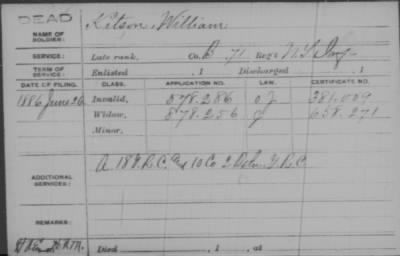 DEAD
NAME OF SOLDIER: Kitson, William
SERVICE: Late rank, Co. B 71 Reg't N.Y. Inf.
TERM OF SERVICE: Enlisted , 1 Discharged , 1
DATE OF FILING. CLASS. APPLICATION NO. LAW. CERTIFICATE NO.
1886 June 26 Invalid, 578.286 381.009
Widow, 878.256 658.271
Minor,
ADDITIONAL SERVICES: A. 18 V.R.C. 10 Co 2
REMARKS:
Died , 1 , at